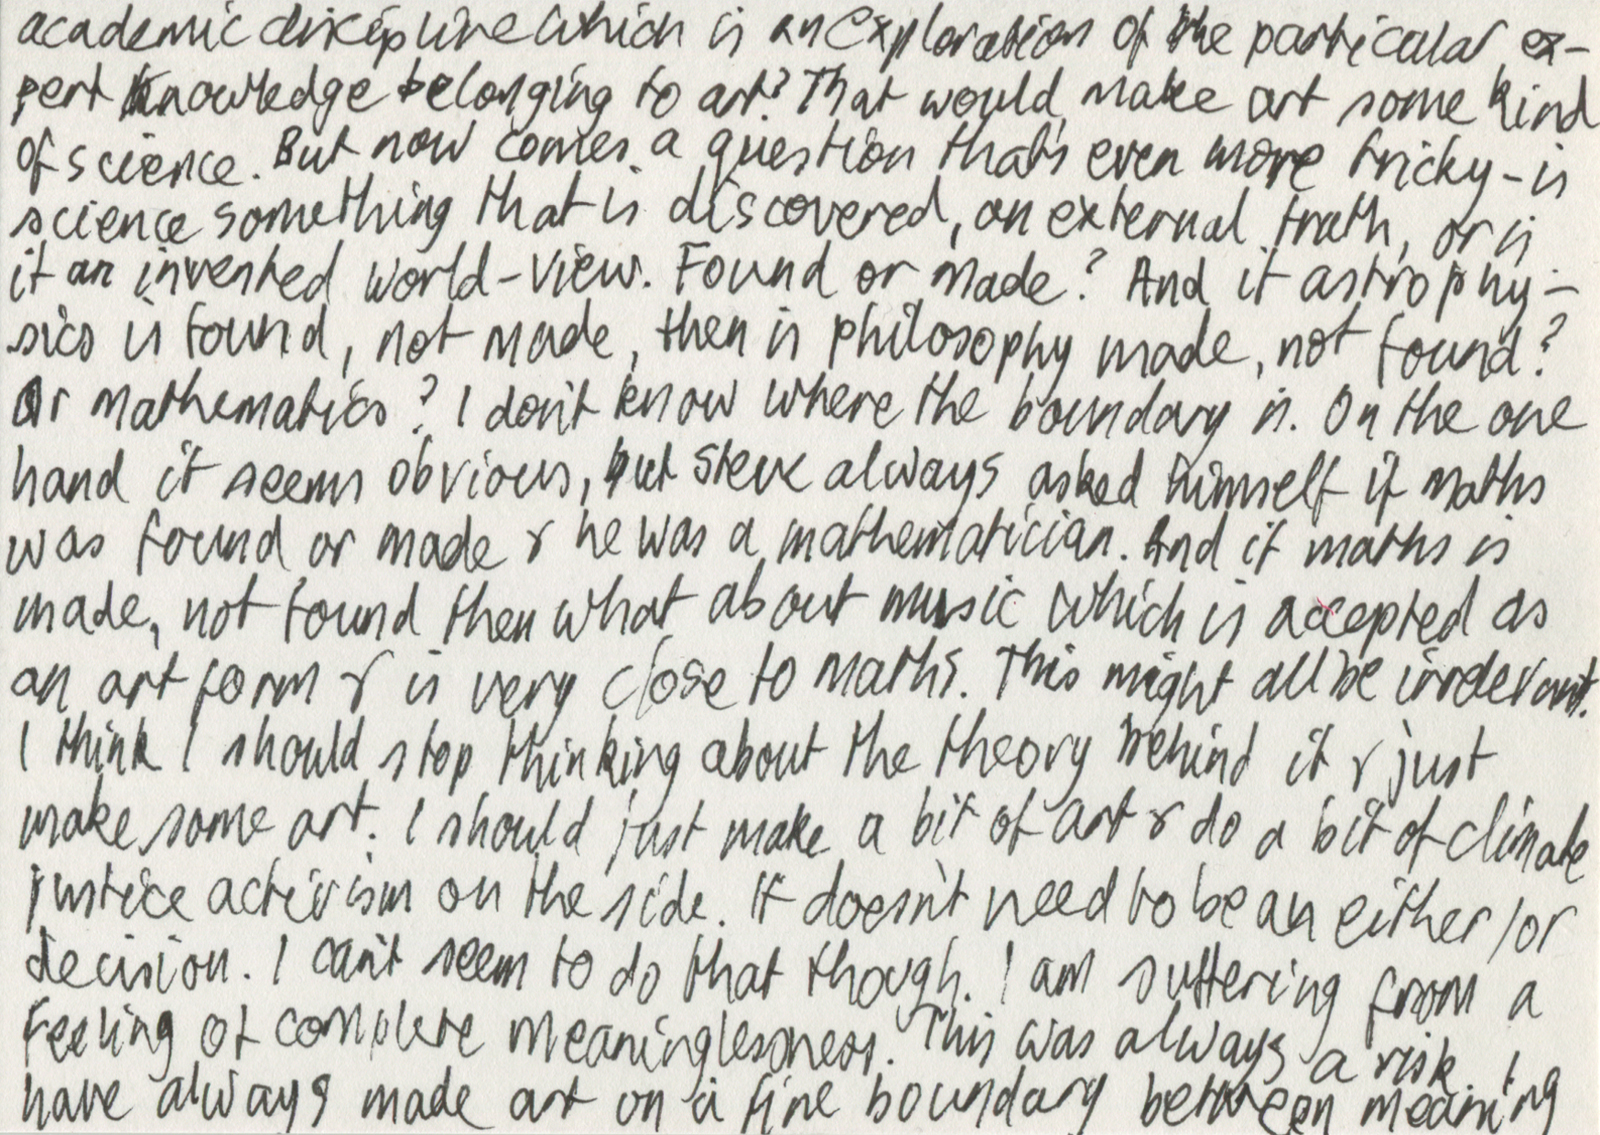 academic discipline which is an exploration of the particular ex-
pert knowledge belonging to art? That would make art some kind
of science. But now comes a question that's even more tricky - is
science something that is discovered, an external truth, or is
it an invented world-view. Found or made? And if astrophy-
sics is found, not made, then is philosophy made, not found?
Or mathematics? I don't know where the boundary is. On the one
hand it seems obvious, but Steve always asked himself if maths
was found or made & he was a mathematician. And if maths is
made, not found then what about music which is accepted as
an art form & is very close to maths. This might all be irrelevant.
I think I should stop thinking about the theory behind it & just
make some art. I should just make a bit of art & do a bit of climate
justice activism on the side. It doesn't need to be an either/or
decision. I can't seem to do that though. I am suffering from a
feeling of complete meaninglessness. This was always a risk. I
have always made art on a fine boundary between meaning